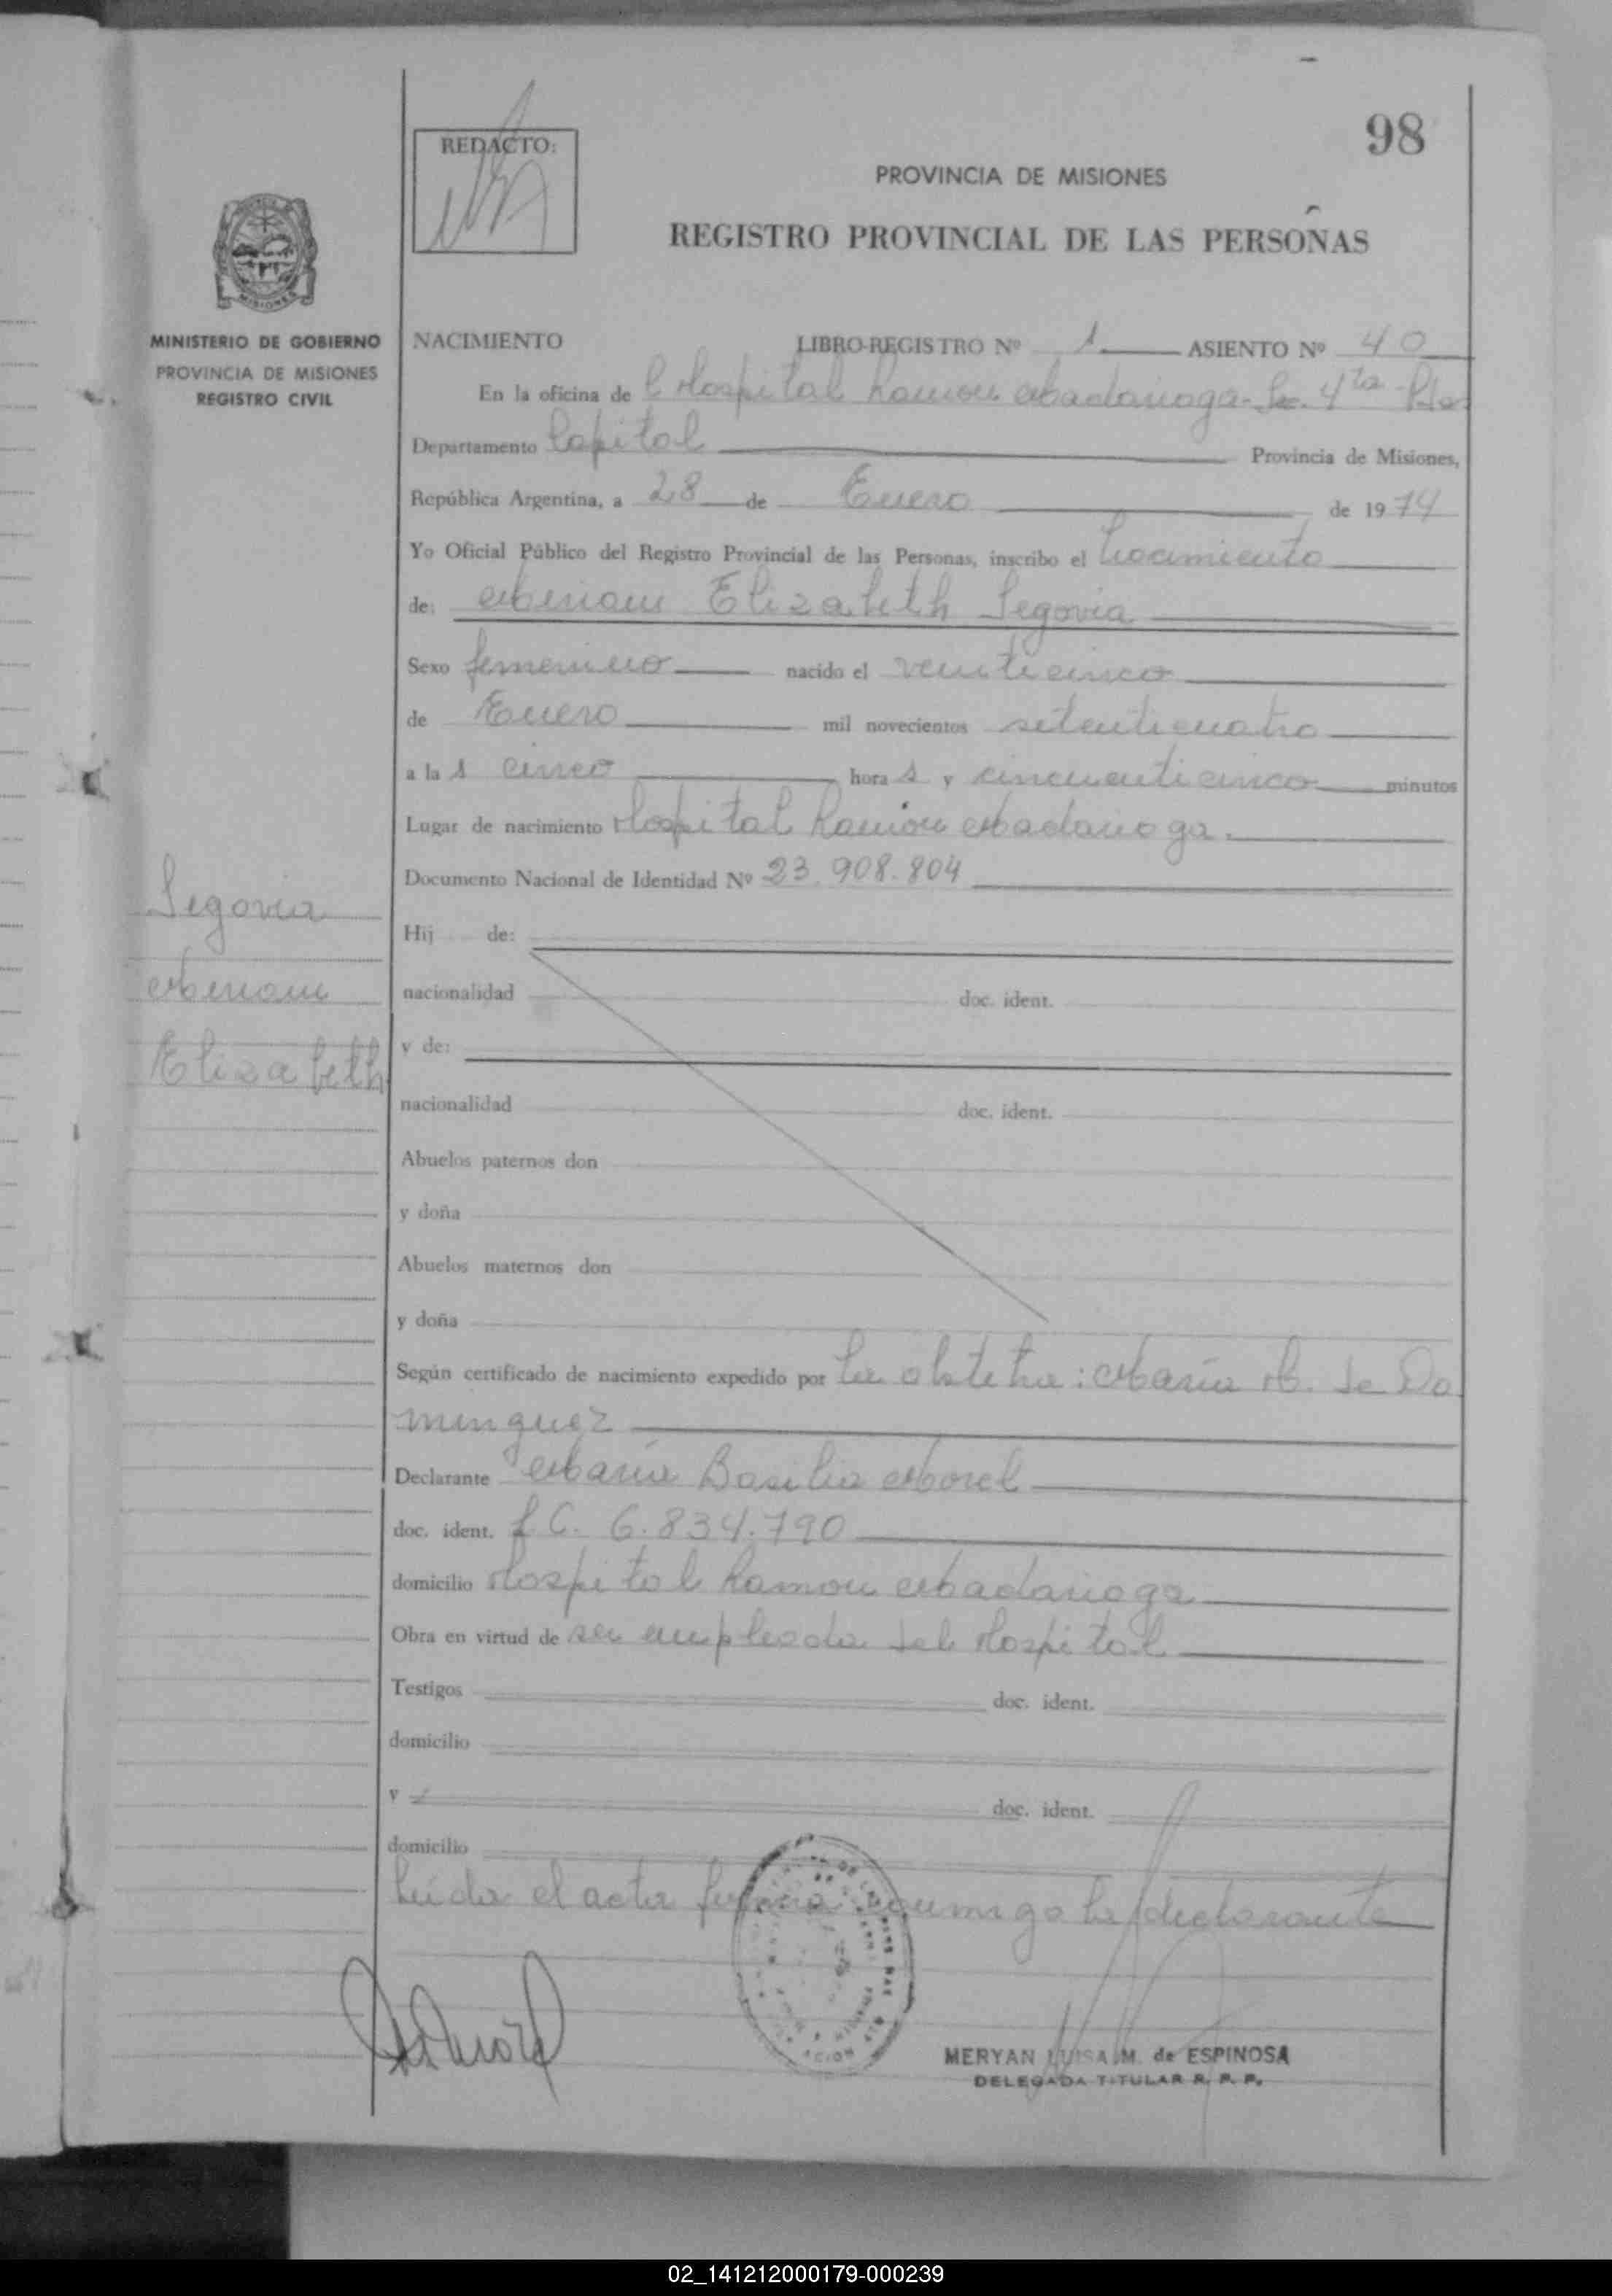 98
REDACTO:
PROVINCIA DE MISIONES
REGISTRO PROVINCIAL DE LAS PERSONAS
MINISTERIO DE GOBIERNO
PROVINCIA DE MISIONES
REGISTRO CIVIL
NACIMIENTO LIBRO-REGISTRO Nº 1 ASIENTO Nº 40
En la oficina de l Hospital Ramon Madariaga - Sec. 4ta
Departamento Capital Provincia de Misiones,
República Argentina, a 28 de Enero de 1974
Yo Oficial Público del Registro Provincial de las Personas, inscribo el Nacimiento
de: Miriam Elizabeth Segovia
Sexo femenino nacido el veinticinco
de Enero mil novecientos setenticuatro
a la s cinco hora s y cincuenticinco minutos
Lugar de nacimiento Hospital Ramón Madariaga.
Documento Nacional de Identidad Nº 23.908.804
Segovia
Miriam
Elizabeth
Hij de:
nacionalidad doc. ident.
y de:
nacionalidad doc. ident.
Abuelos paternos don
y doña
Abuelos maternos don
y doña
Según certificado de nacimiento expedido por la obstetra: María M. de Do
minguez
Declarante María Basilia Morel
doc. ident. L C. 6.834.790
domicilio Hospital Ramon Madariaga
Obra en virtud de ser empleada del Hospital
Testigos doc. ident.
domicilio
y doc. ident.
domicilio
Leída el acta firma conmigo la declarante
MERYAN LUISA M. de ESPINOSA
DELEGADA TITULAR R. P. P.
02_141212000179-000239